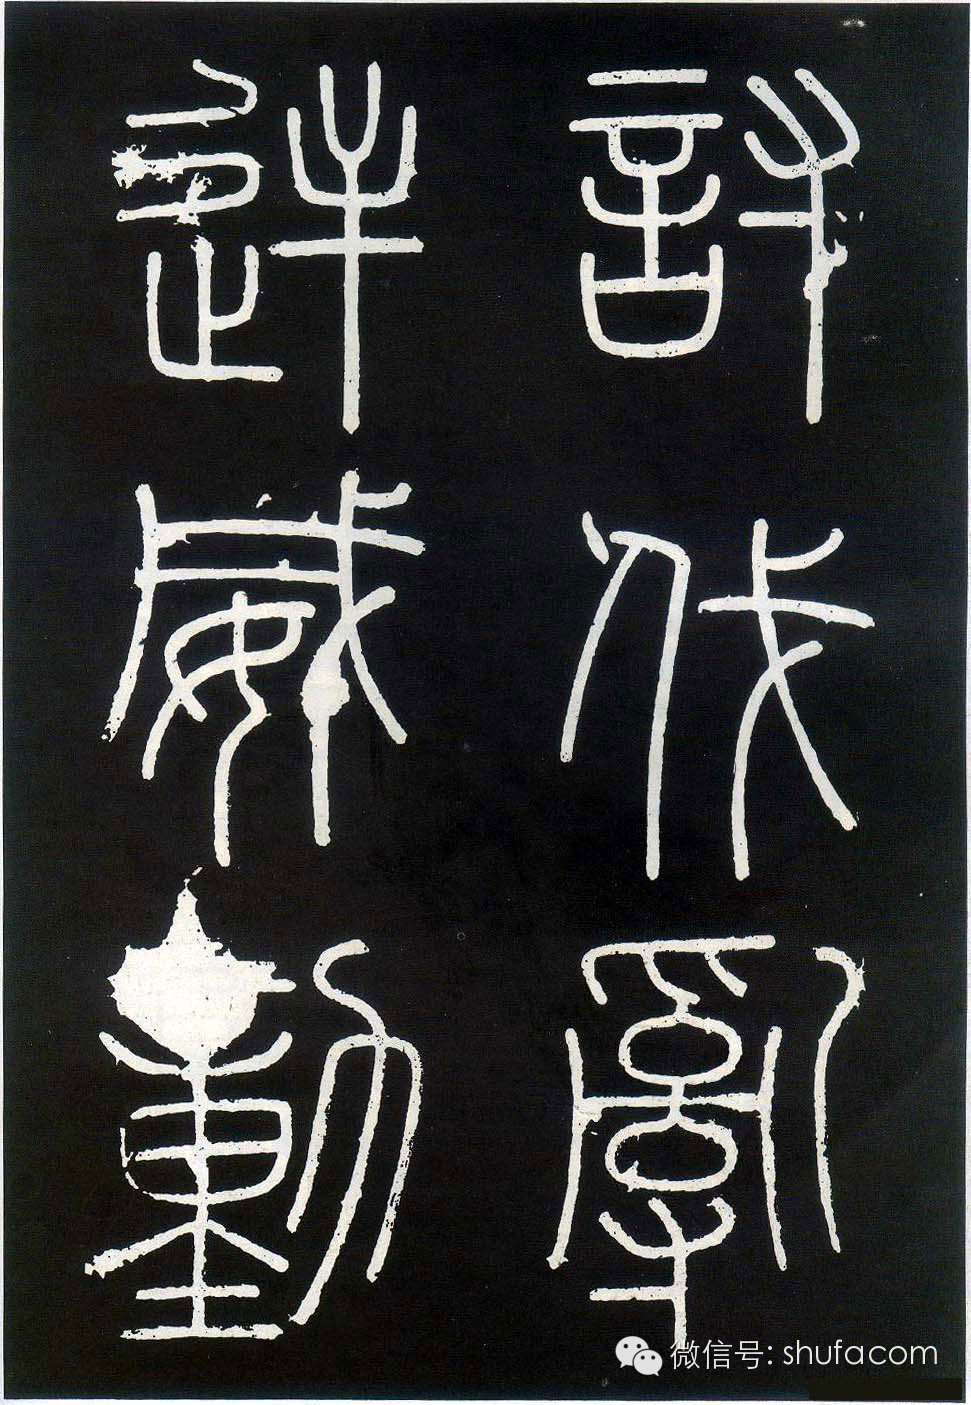 討伐亂
逆威動
微信号: shufacom